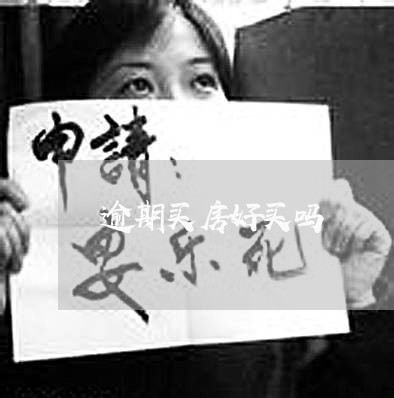 申請：
逾期买房好买吗
安乐死